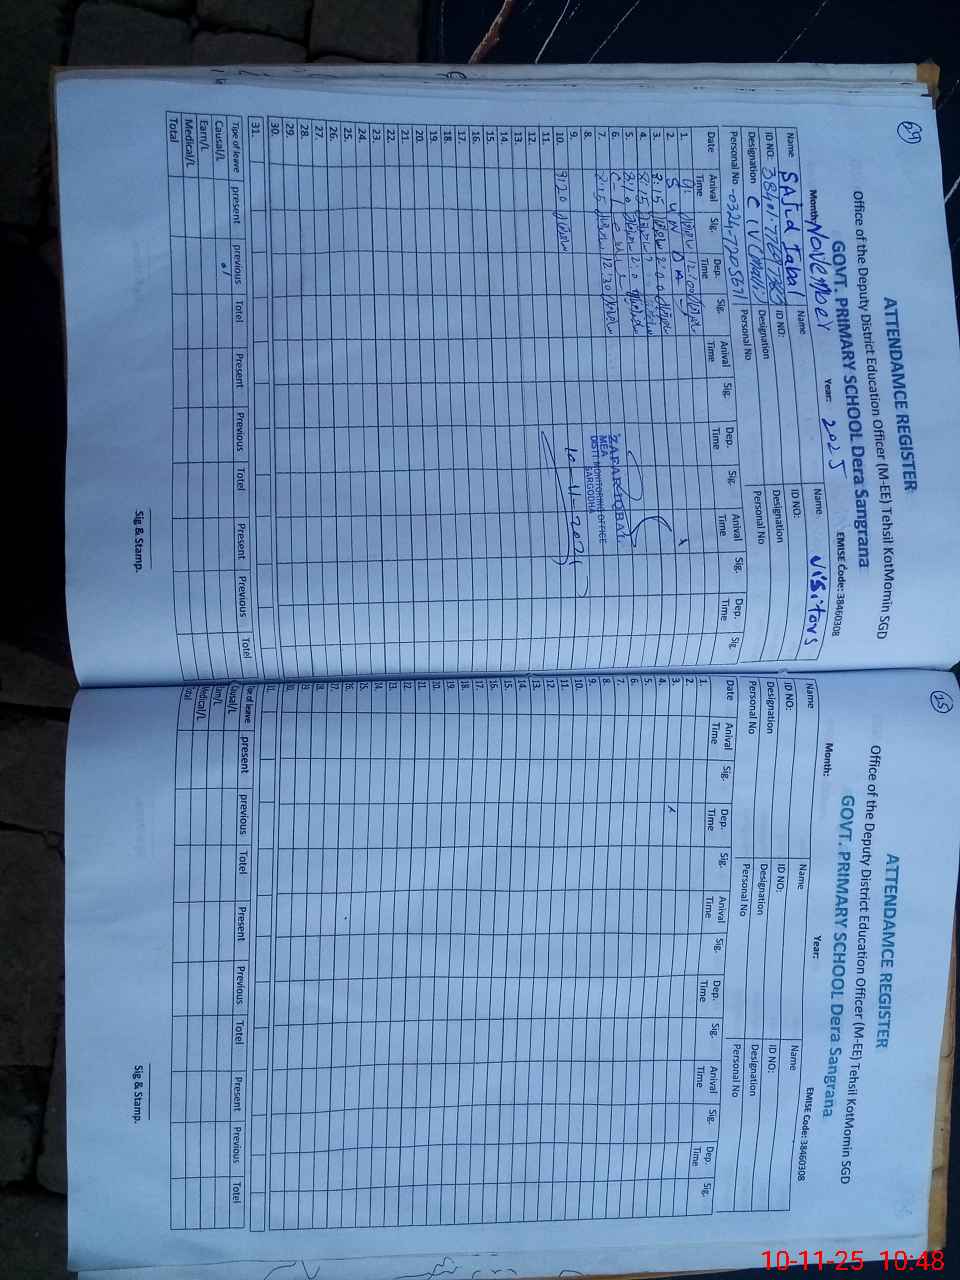 69
ATTENDAMCE REGISTER
Office of the Deputy District Education Officer (M-EE) Tehsil KotMomin SGD
GOVT. PRIMARY SCHOOL Dera Sangrana
EMISE Code: 38460308
Month: November Year: 2025
Name Sajid Iqbal Name Name Visitors
ID NO: ID NO: ID NO:
Designation C IV (Mali) Designation Designation
Personal No Personal No Personal No
Date Anival Time Sig. Dep. Time Sig. Anival Time Sig. Dep. Time Sig. Anival Time Sig. Dep. Time Sig.
1. 12:00
2. S U N D A Y
3. 8:15 2:00
4. 8:15
5. 2:0
6. C-L
7. 12:30
8.
9.
10.
11.
12.
13.
14.
15.
16.
17.
18.
19.
20.
21.
22.
23.
24.
25.
26.
27.
28.
29.
30.
31.
ZAFAR IQBAL
MEA
DISTT. MONITORING OFFICE
SARGODHA
10-11-2025
Tipe of leave present previous Totel Present Previous Totel Present Previous Totel
Causal/L
Earn/L
Medical/L
Total
Sig & Stamp.
ATTENDAMCE REGISTER
Office of the Deputy District Education Officer (M-EE) Tehsil KotMomin SGD
GOVT. PRIMARY SCHOOL Dera Sangrana
EMISE Code: 38460308
Month: Year:
Name Name Name
ID NO: ID NO: ID NO:
Designation Designation Designation
Personal No Personal No Personal No
Date Anival Time Sig. Dep. Time Sig. Anival Time Sig. Dep. Time Sig. Anival Time Sig. Dep. Time Sig.
1.
2.
3.
4.
5.
6.
7.
8.
9.
10.
11.
12.
13.
14.
15.
16.
17.
18.
19.
20.
21.
22.
23.
24.
25.
26.
27.
28.
29.
30.
31.
of leave present previous Totel Present Previous Totel Present Previous Totel
Causal/L
Earn/L
Medical/L
Total
Sig & Stamp.
10-11-25 10:48